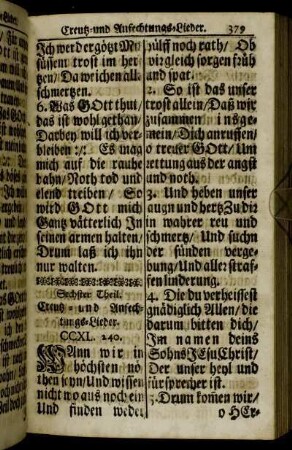 Creutz-und Anfechtungs-Lieder. 379
Ich werd ergötzt Mit
süssem trost im her-
tzen/Da weichen all
schmertzen.
6. Was GOtt thut/
das ist wohl gethan/
Darbey will ich ver-
bleiben :/: Es mag
mich auf die rauhe
bahn/Noth tod und
elend treiben/ So
wird GOtt mich
Gantz vätterlich In
seinen armen halten/
Drum laß ich ihn
nur walten.
Sechster Theil.
Creutz- und Anfech-
tungs-Lieder.
CCXL. 240.
WAnn wir in
höchsten nö-
then seyn/Und wissen
nicht wo aus noch ein
Und finden weder
hülff noch rath/ Ob
wir gleich sorgen früh
und spat.
2. So ist das unser
trost allein/Daß wir
zusammen insge-
mein/Dich anruffen/
o treuer GOtt/Um
rettung aus der angst
und noth.
3. Und heben unser
augn und hertz Zu dir
in wahrer reu und
schmertz/ Und suchn
der sünden verge-
bung/Und aller straf-
fen linderung.
4. Die du verheissest
gnädiglich Allen/ die
darum bitten dich/
Im namen deins
Sohns JEsu Christ/
Der unser heyl und
fürsprecher ist.
5. Drum kom̄en wir/
o HEr-